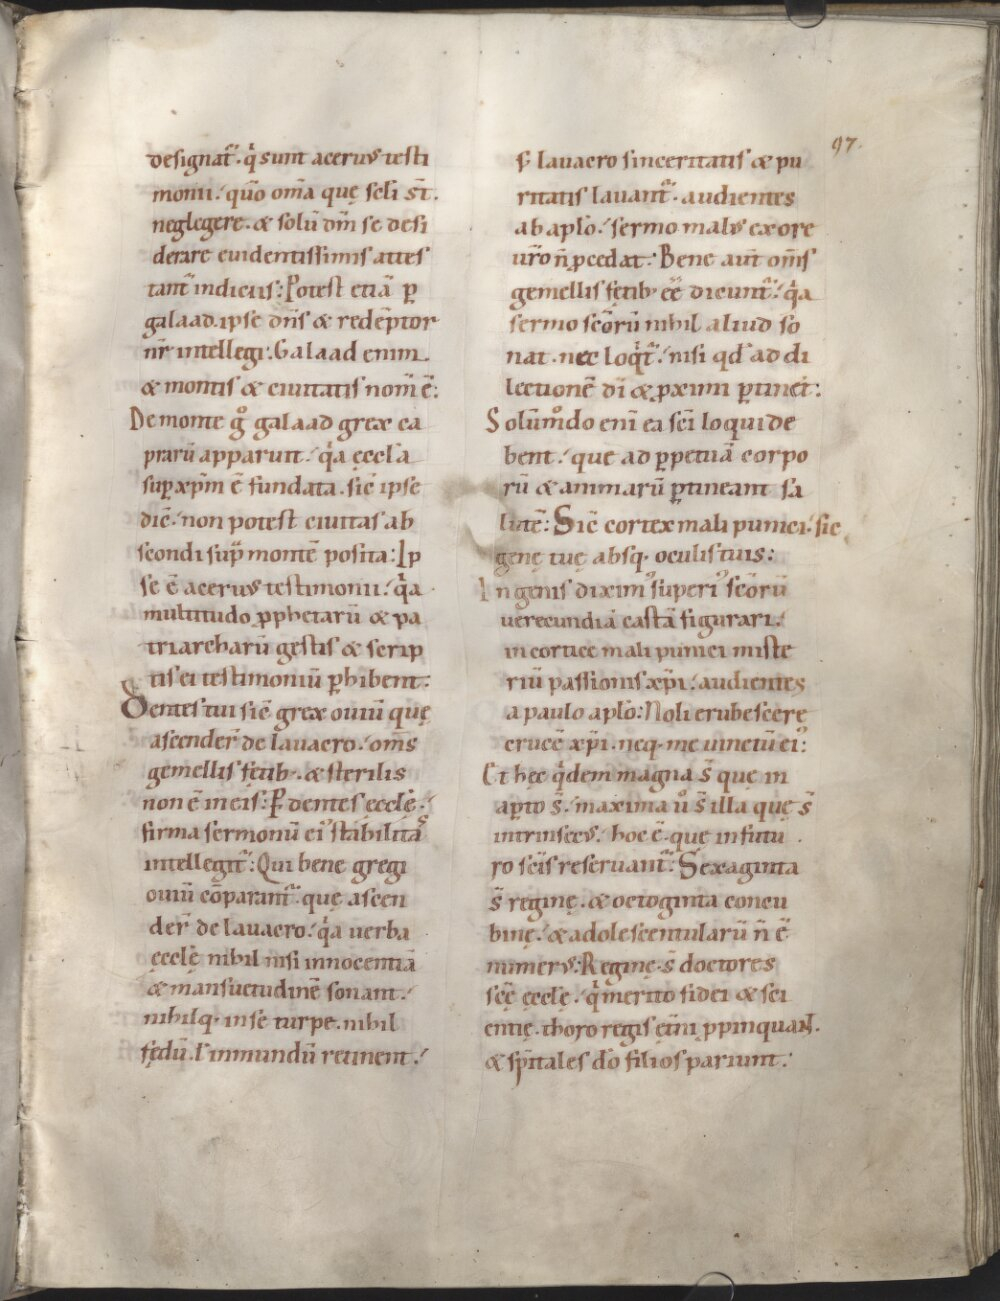 97.
designat᷑. qͥ sunt aceruꝰ testi
monii.᷎ quō om̄a quę scl̄i st̄.
neglegere. & solū dm̄ se desi
derare euidentissimis attes
tant᷑ indiciis: Potest etiā ꝑ
galaad. ipse dn̄s & redēptor
nr̄ intellegi. Galaad enim
& montis & ciuitatis nom̄ ē:
De monte gͦ galaad grex ca
prarū apparuit.᷎ qͥa ęccl̄a
suꝑ xp̄m ē fundata. sic̄ ipse
dic̄.᷎ non potest ciuitas ab
scondi suꝑ montē posita: Ip
se ē aceruꝰ testimonii.᷎ qͥa
multitudo ꝓphetarū & pa
triarcharū gestis & scrip
tis ei testimoniū ꝑhibent:
Dentes tui sic̄ grex ouiū quę
ascender̄ de lauacro.᷎ om̄s
gemellis fętib᷒. & sterilis
non ē in eis: P̱ dentes ęccl̄ę.᷎
firma sermonū eiꝰ stabilitaͭ
intellegit᷑: Qui bene gregi
ouiū cōparant᷑. que ascen
der̄ de lauacro.᷎ qͥa uerba
ęccl̄ę nihil nisi innocentiā
& mansuetudinē sonant.᷎
nihilq. in se turpe. nihil
fędū. l̄ inmundū retinent.᷎
s; lauacro sinceritatis & pu
ritatis lauant᷑. audientes
ab apl̄o.᷎ sermo malꝰ ex ore
ur̄o n̄ ꝓcedat: Bene aut̄ om̄s
gemellis fętib᷒ ēē dicunt᷑.᷎ qͥa
sermo scōrū nihil aliud so
nat. nec loqͥt᷑.᷎ nisi qd̄ ad di
lectionē dī & ꝓximi ꝑtinet:
Solūmͦdo eni̅ ea scī loqui de
bent.᷎ que ad ꝑpetuā corpo
rū & animarū ꝑtineant sa
lutē: Sic̄ cortex mali punici. sic
genę tuę absq. oculis tuis:
In genis diximꝰ superiꝰ scōrū
uerecundiā castā figurari.᷎
in cortice mali punici miste
riū passionis xp̄i.᷎ audientes
a paulo apl̄o: Noli erubescere
crucē xp̄i. neq. me uinctū eiꝰ:
Et hec qͥdem magna s̄ quę in
aꝑto s̄.᷎ maxima uͦ s̄ illa quę s̄
intrinsecꝰ. hoc ē. quę in futu
ro scīs reseruant᷑: Sexaginta
s̄ reginę. & octoginta concu
binę.᷎ & adolescentularū n̄ ē
numerꝰ: Reginę s̄ doctores
scę̄ ęccl̄ę.᷎ qͥ merito fidei & sci
entię. thoro regis ęt̄ni ꝓpinquant.
& sp̄itales dō filios pariunt.᷎